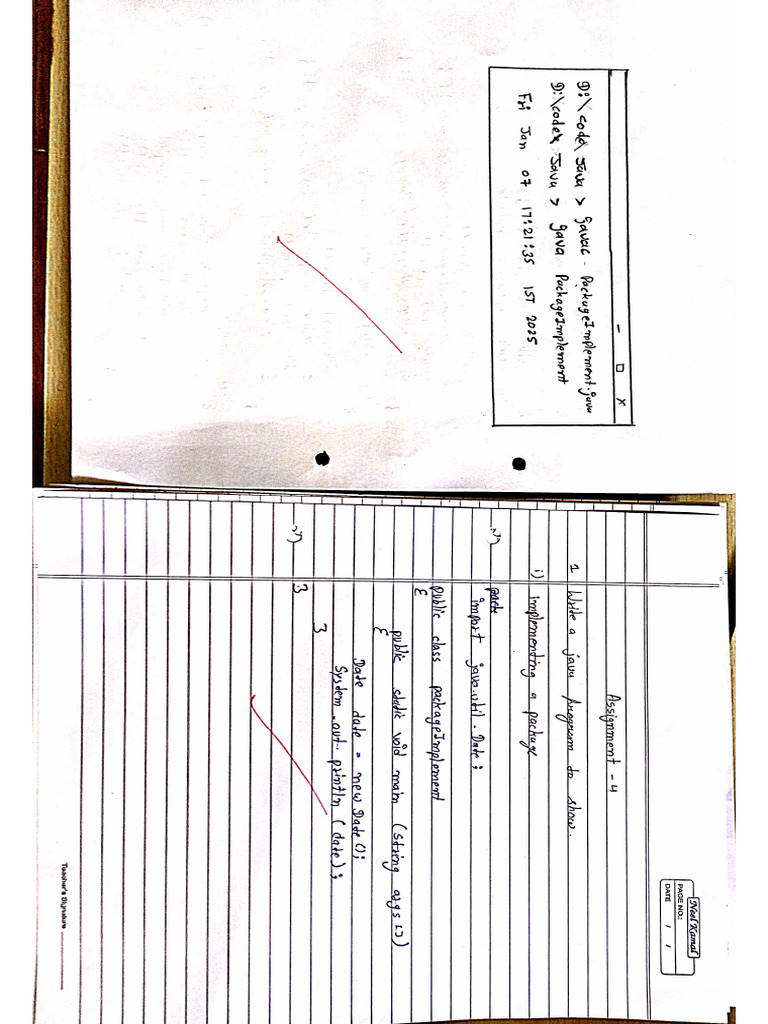 - □ x
D:\code\Java > javac - PackageImplement.java
D:\code\Java > java PackageImplement
Fri Jan 07 17:21:35 IST 2025
Neel Kamal
PAGE NO.:
DATE / /
Assignment - 4
1 Write a java program to show.
i) implementing a package
→ pack
import java.util.Date;
public class packageImplement
{
public static void main (string args [])
{
Date date = new Date();
System.out.println (date);
}
}
Teacher's Signature